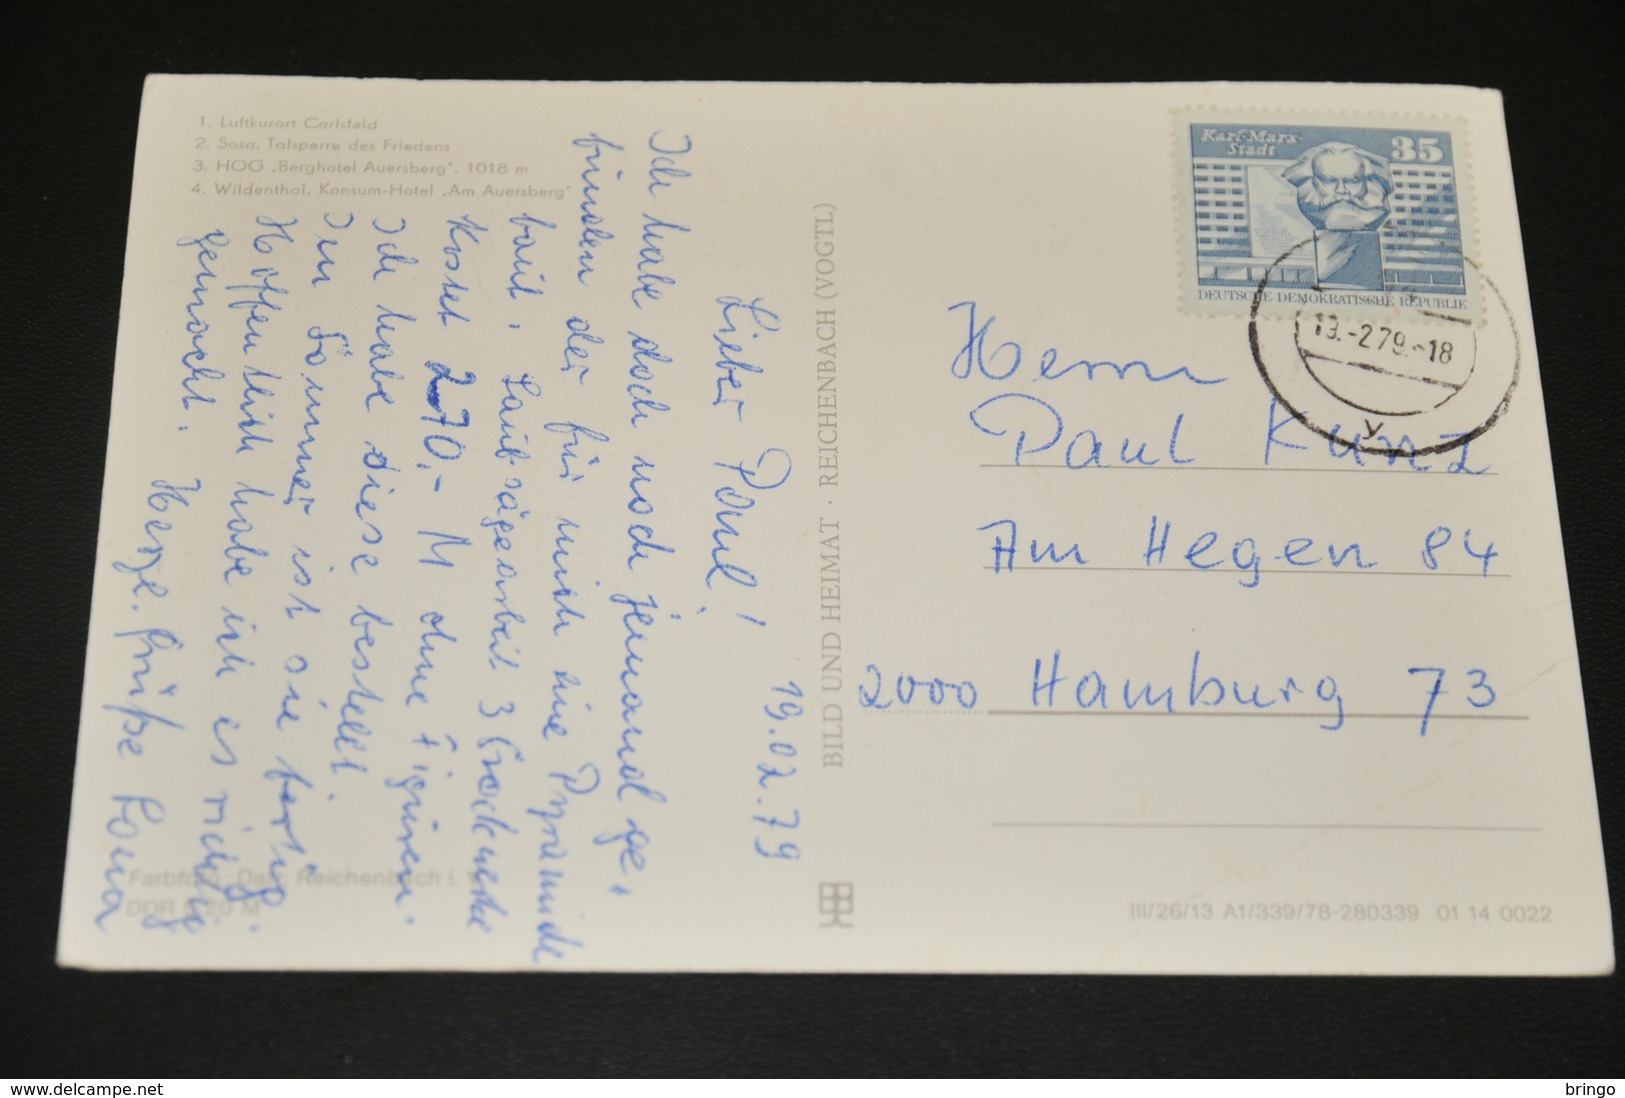 1. Luftkurort Carlsfeld
2. Sosa, Talsperre des Friedens
3. HOG „Berghotel Auersberg", 1018 m
4. Wildenthal, Konsum-Hotel „Am Auersberg"
19.02.79
Lieber Paul!
Ich habe doch noch jemand ge,
funden der für mich eine Pyramide
baut. Laubsägearbeit 3 Stockwerke
Kostet 270,- M ohne Figuren.
Ich habe diese bestellt.
Im Sommer ist sie fertig.
Hoffentlich habe ich es richtig
gemacht.
Herzl. Grüße Lona
Farbfoto: Reichenbach i. V.
DDR 0,20 M
BILD UND HEIMAT · REICHENBACH (VOGTL)
Karl-Marx-
Stadt
35
DEUTSCHE DEMOKRATISCHE REPUBLIK
19.-2.79.-18
y
Herrn
Paul Kunz
Am Hegen 84
2000 Hamburg 73
III/26/13 A1/339/78-280339 01 14 0022
www.delcampe.net
bringo